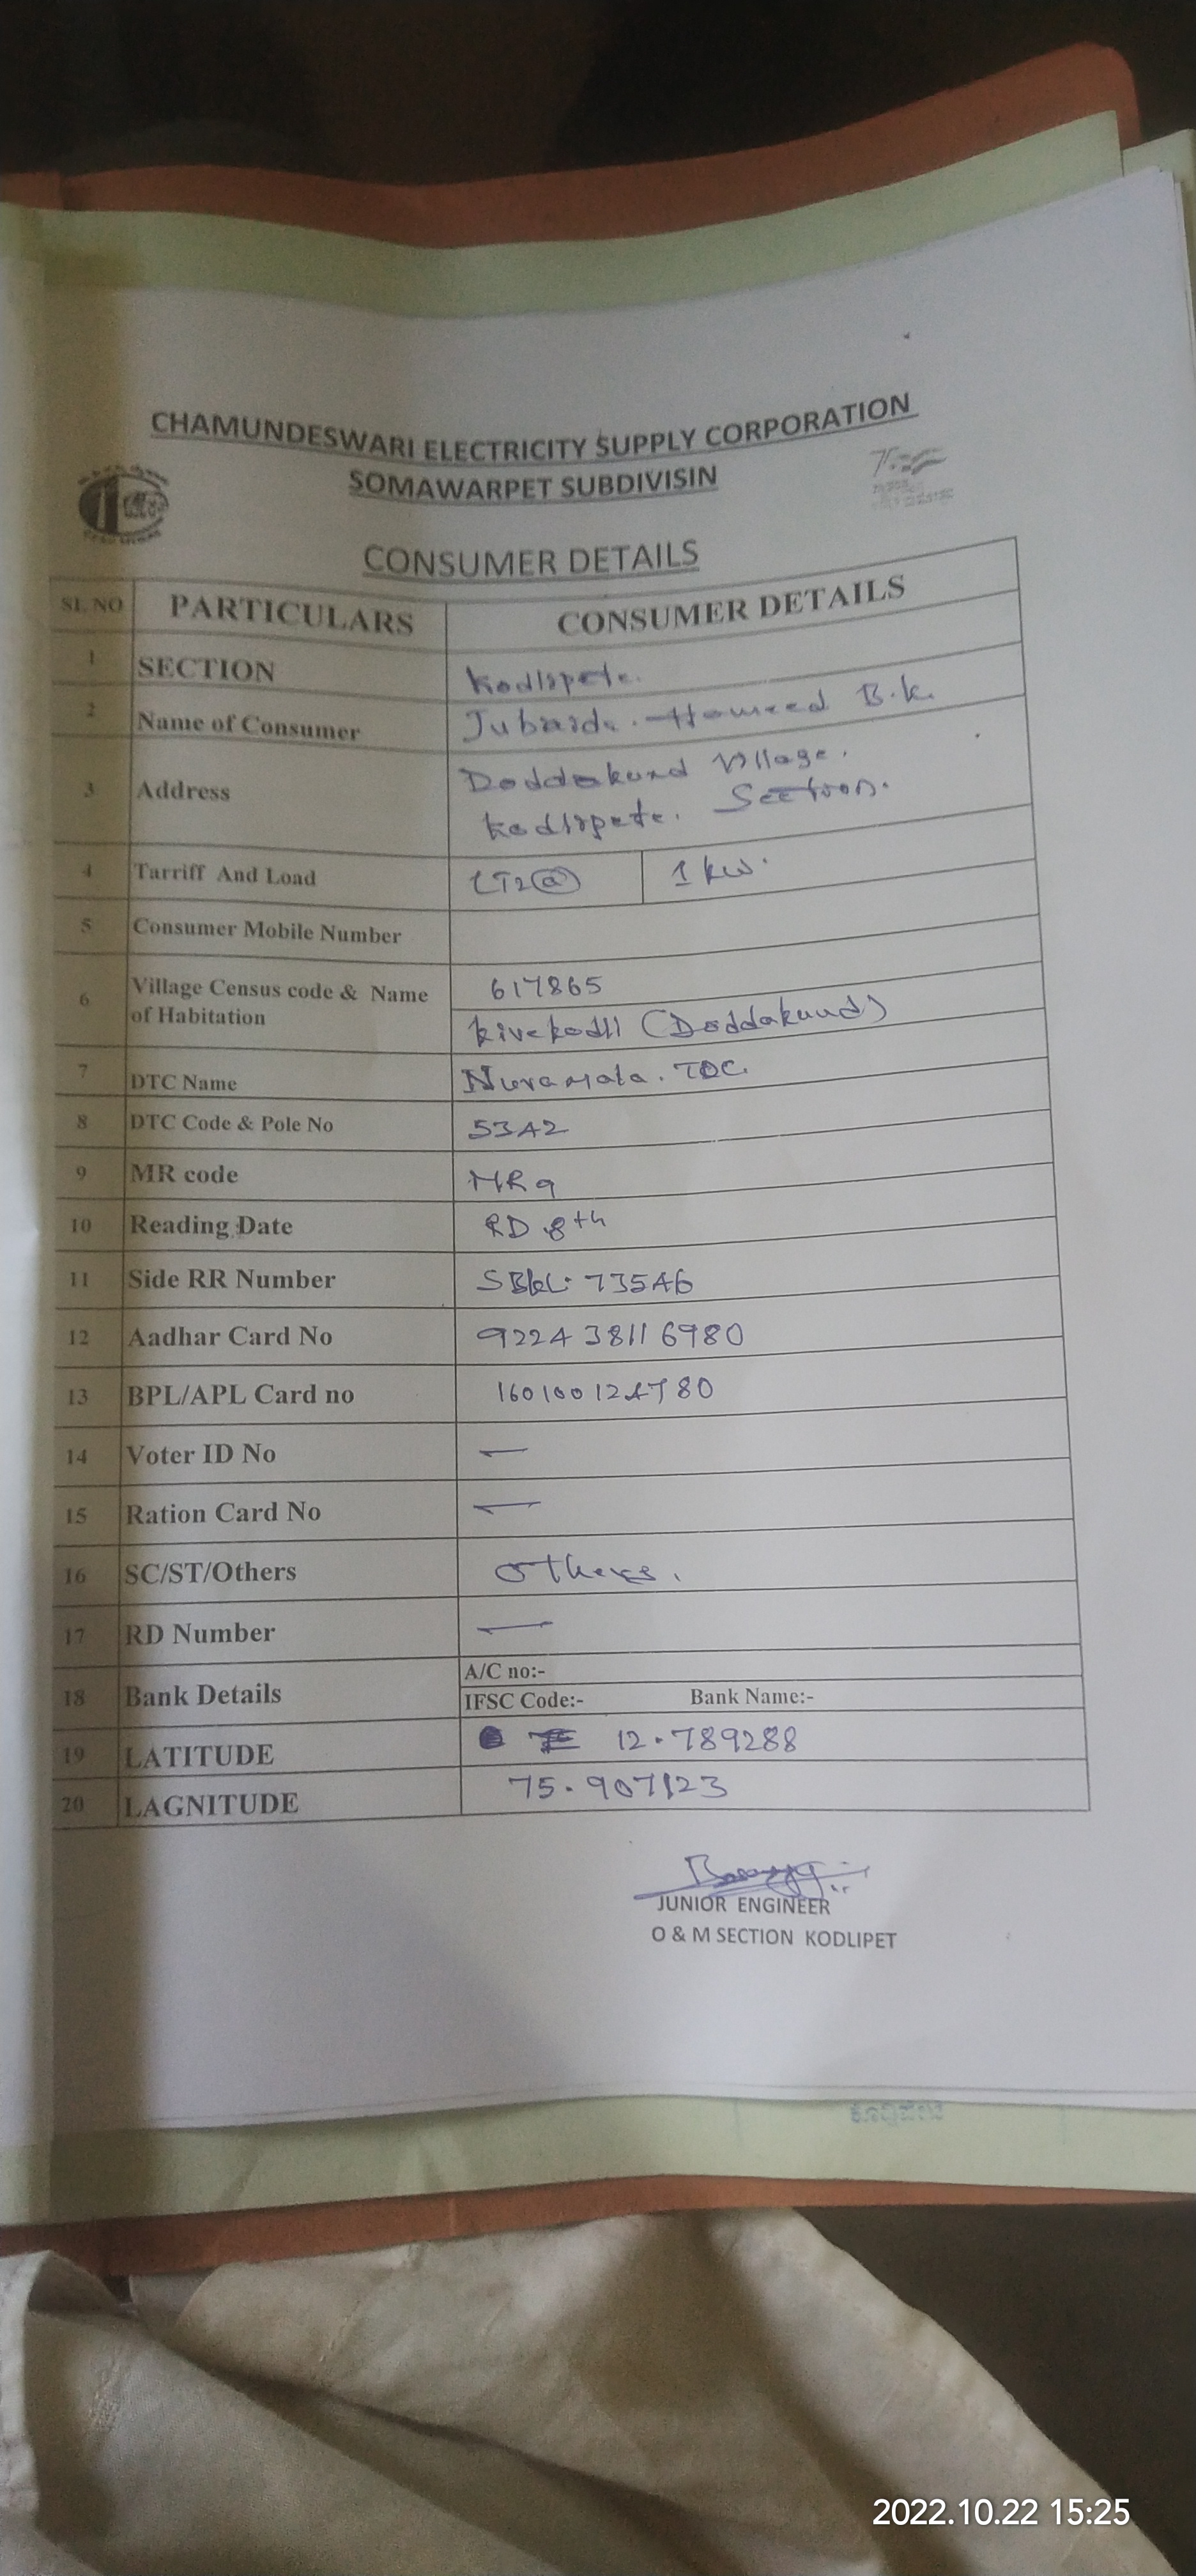 CHAMUNDESWARI ELECTRICITY SUPPLY CORPORATION
SOMAWARPET SUBDIVISIN
CONSUMER DETAILS
SL NO PARTICULARS CONSUMER DETAILS
1 SECTION Kodlipete.
2 Name of Consumer Jubaida. Hameed B.K.
3 Address Doddakund Village.
Kodlipete. Section.
4 Tarriff And Load LT2(a) 1 kw.
5 Consumer Mobile Number
6 Village Census code & Name of Habitation 617865
kirekodli (Doddakund)
7 DTC Name
8 DTC Code & Pole No 53A2
9 MR code MR9
10 Reading Date RD 8th
11 Side RR Number 73546
12 Aadhar Card No 9224 3811 6980
13 BPL/APL Card no 160100124780
14 Voter ID No —
15 Ration Card No —
16 SC/ST/Others Others.
17 RD Number —
18 Bank Details A/C no:-
IFSC Code:- Bank Name:-
19 LATITUDE 12.789288
20 LAGNITUDE 75.907123
JUNIOR ENGINEER
O & M SECTION KODLIPET
2022.10.22 15:25